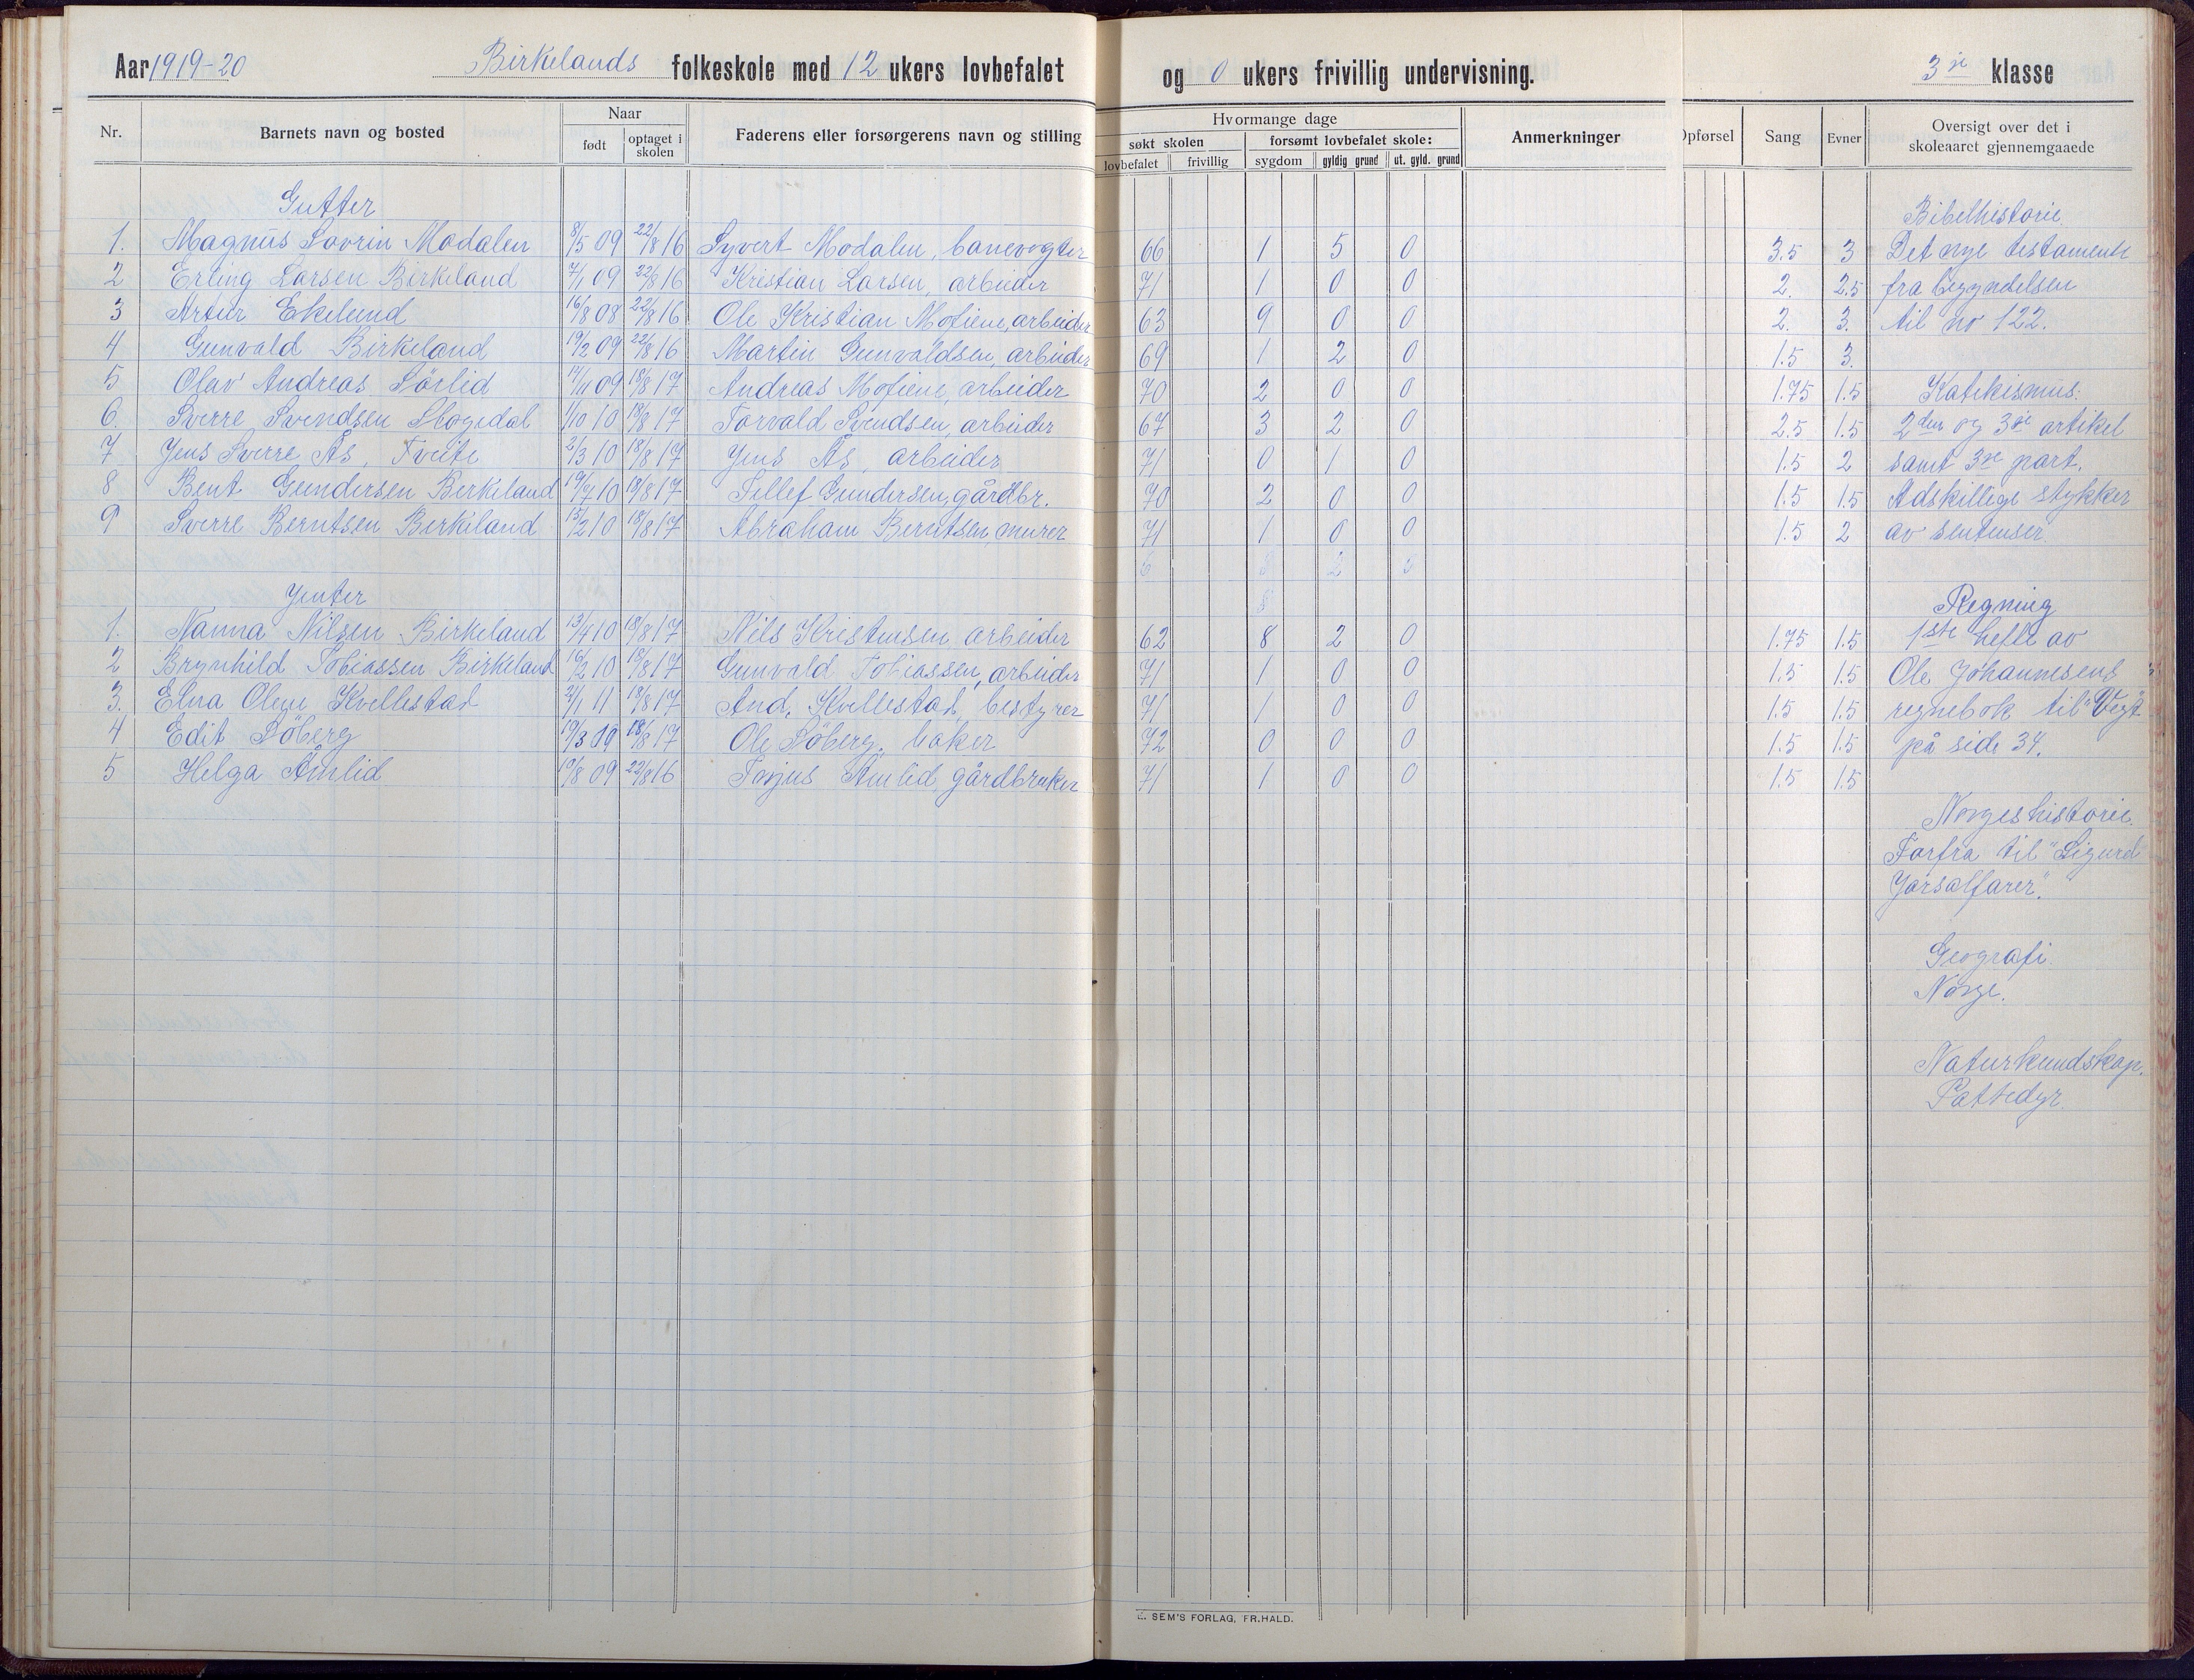 Aar 1919-20 Birkelands folkeskole med 12 ukers lovbefalet og 0 ukers frivillig undervisning. 3je klasse
Nr. Barnets navn og bosted Naar født optaget i skolen Faderens eller forsørgerens navn og stilling
Hvormange dage søkt skolen lovbefalet frivillig forsømt lovbefalet skole: sygdom gyldig grund ut. gyld. grund Anmerkninger
Opførsel Sang Evner Oversigt over det i skoleaaret gjennemgaaede
Gutter
1. Magnus Lovrin Modalen 8/5 09 22/8 16 Syvert Modalen, banevogter 66 1 5 0 3.5 3
2 Erling Larsen Birkeland 7/1 09 22/8 16 Kristian Larsen, arbeider 71 1 0 0 2. 2.5
3 Artur Ekelund 16/8 08 22/8 16 Ole Kristian Mofiene, arbeider 63 9 0 0 2. 3.
4 Gunvald Birkeland 19/2 09 22/8 16 Martin Gunvaldsen, arbeider 69 1 2 0 1.5 3.
5 Olav Andreas Sörlid 14/11 09 18/8 17 Andreas Mofiene, arbeider 70 2 0 0 1.75 1.5
6. Sverre Svendsen Skogedal 1/10 10 18/8 17 Torvald Svendsen, arbeider 67 3 2 0 2.5 1.5
7 Jens Sverre Ås, Tveite 2/3 10 18/8 17 Jens Ås, arbeider 71 0 1 0 1.5 2
8 Bent Gundersen Birkeland 19/7 10 18/8 17 Tellef Gundersen, gårdbr. 70 2 0 0 1.5 1.5
9 Sverre Berntsen Birkeland 15/2 10 18/8 17 Abraham Berntsen, murer 71 1 0 0 1.5 2
Jenter
1. Nanna Nilsen Birkeland 13/4 10 18/8 17 Nils Kristensen arbeider 62 8 2 0 1.75 1.5
2 Brynhild Tobiassen Birkeland 16/2 10 18/8 17 Gunvald Tobiassen, arbeider 71 1 0 0 1.5 1.5
3. Elna Olene Kvellestad 21/1 11 18/8 17 And. Kvellestad, bestyrer 71 1 0 0 1.5 1.5
4 Edit Söberg 19/3 09 18/8 17 Ole Söberg, baker 72 0 0 0 1.5 1.5
5 Helga Åmlid 19/8 09 22/8 16 Torjus Åmlid gårdbruker 71 1 0 0 1.5 1.5
Bibelhistorie.
Det nye testamente
fra begyndelsen
til no 122.
Katekismus:
2den og 3je artikel
samt 3je part.
Adskillige stykker
av sentenser.
Regning
1ste hefte av
Ole Johannesens
regnebok til "Vegt"
på side 34.
Norgeshistorie.
Forfra til "Sigurd
Jorsalfarer".
Geografi.
Norge.
Naturkundskap.
Pattedyr.
E. SEM'S FORLAG, FR.HALD.